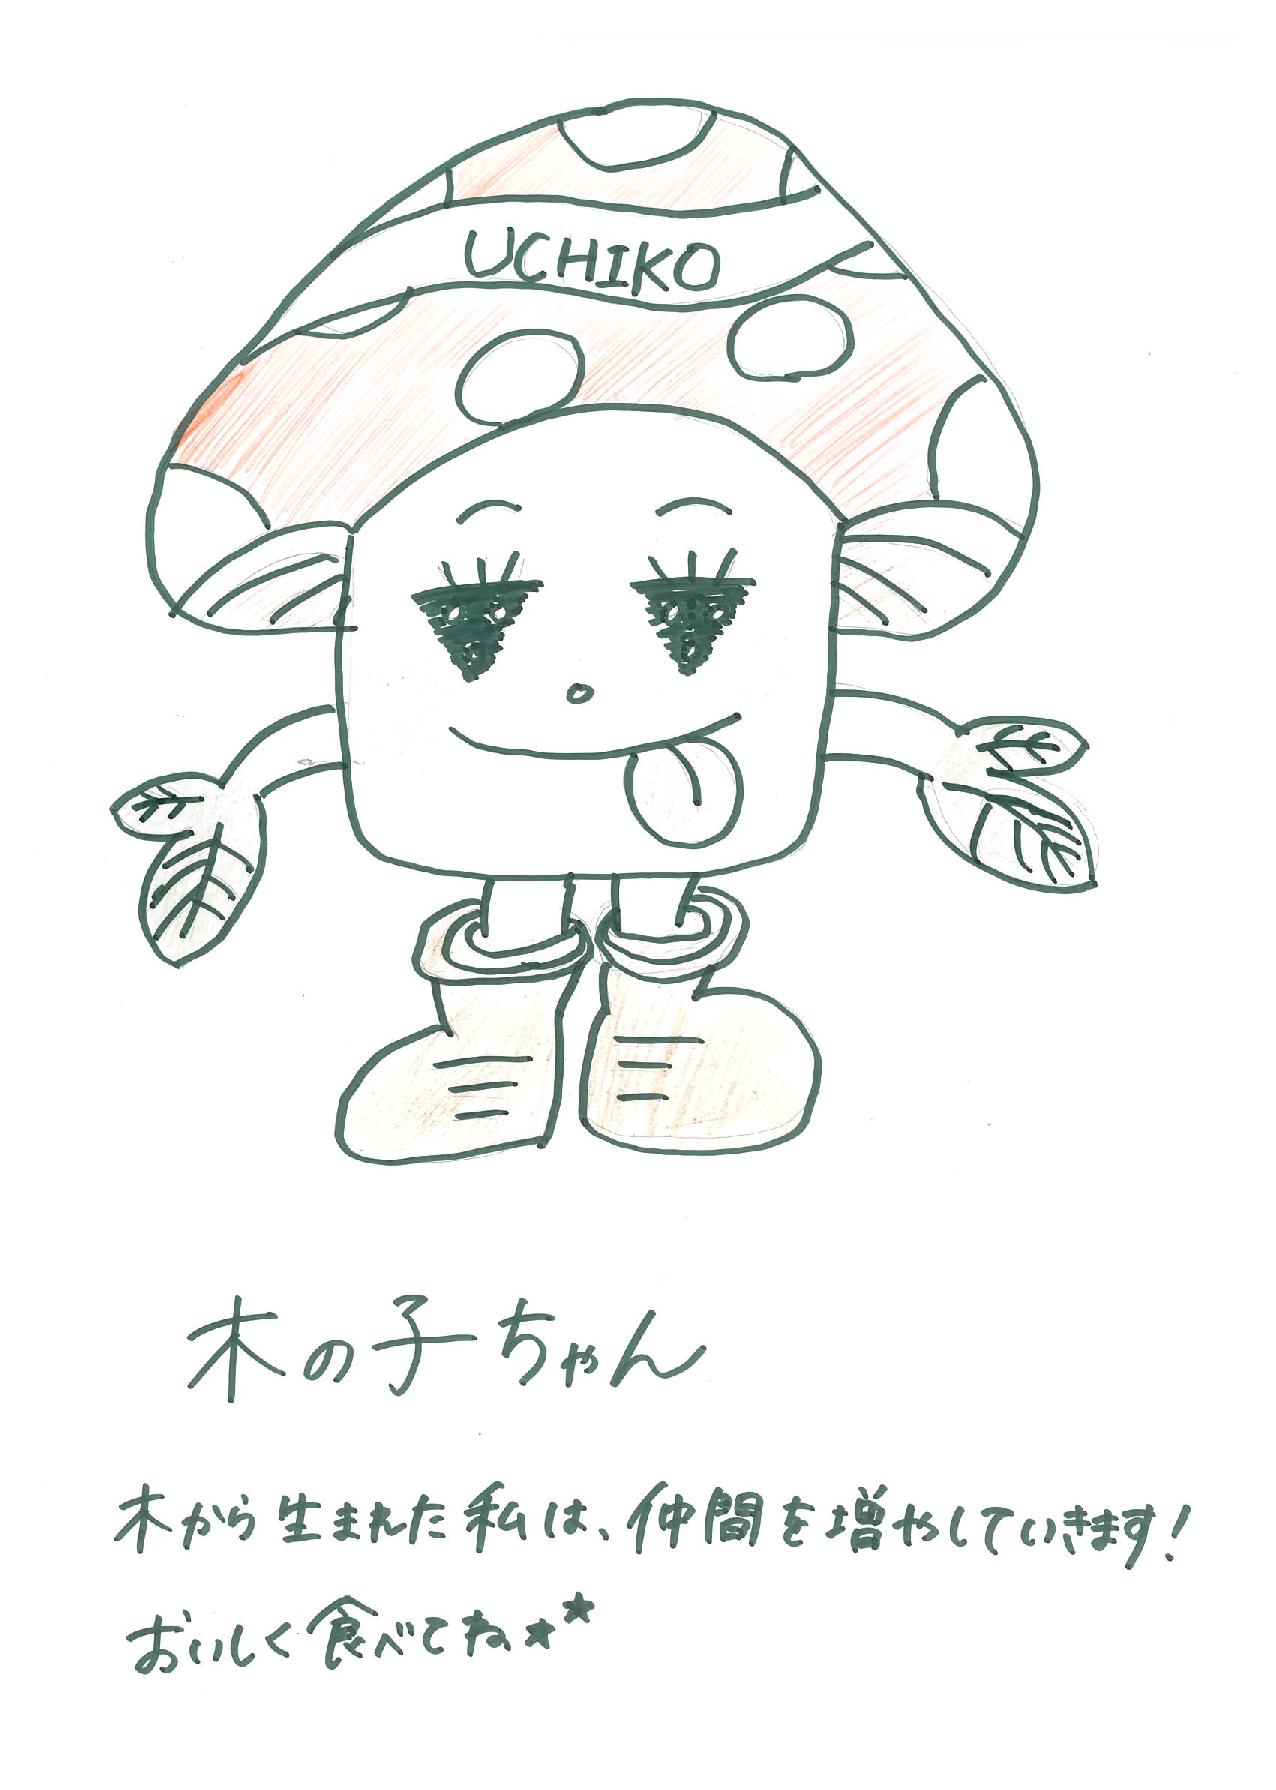 UCHIKO
木の子ちゃん
木から生まれた私は、仲間を増やしていきます!
おいしく食べてね★★